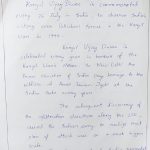 Kargil Vijay Diwas is commemorated
every 26 July in India to observe India's
victory over Pakistan forces in the Kargil
War in 1999.
Kargil Vijay Diwas is
celebrated every year in honour of the
Kargil War's Heroes. In New Delhi the
Prime Minister of India pay homage to the
soldiers at Amar Jawan Jyoti at the
India Gate every year.
The subsequent discovery of
the infiltration
caused the Indian army to realize that
plan of attack was on a much bigger
scale.